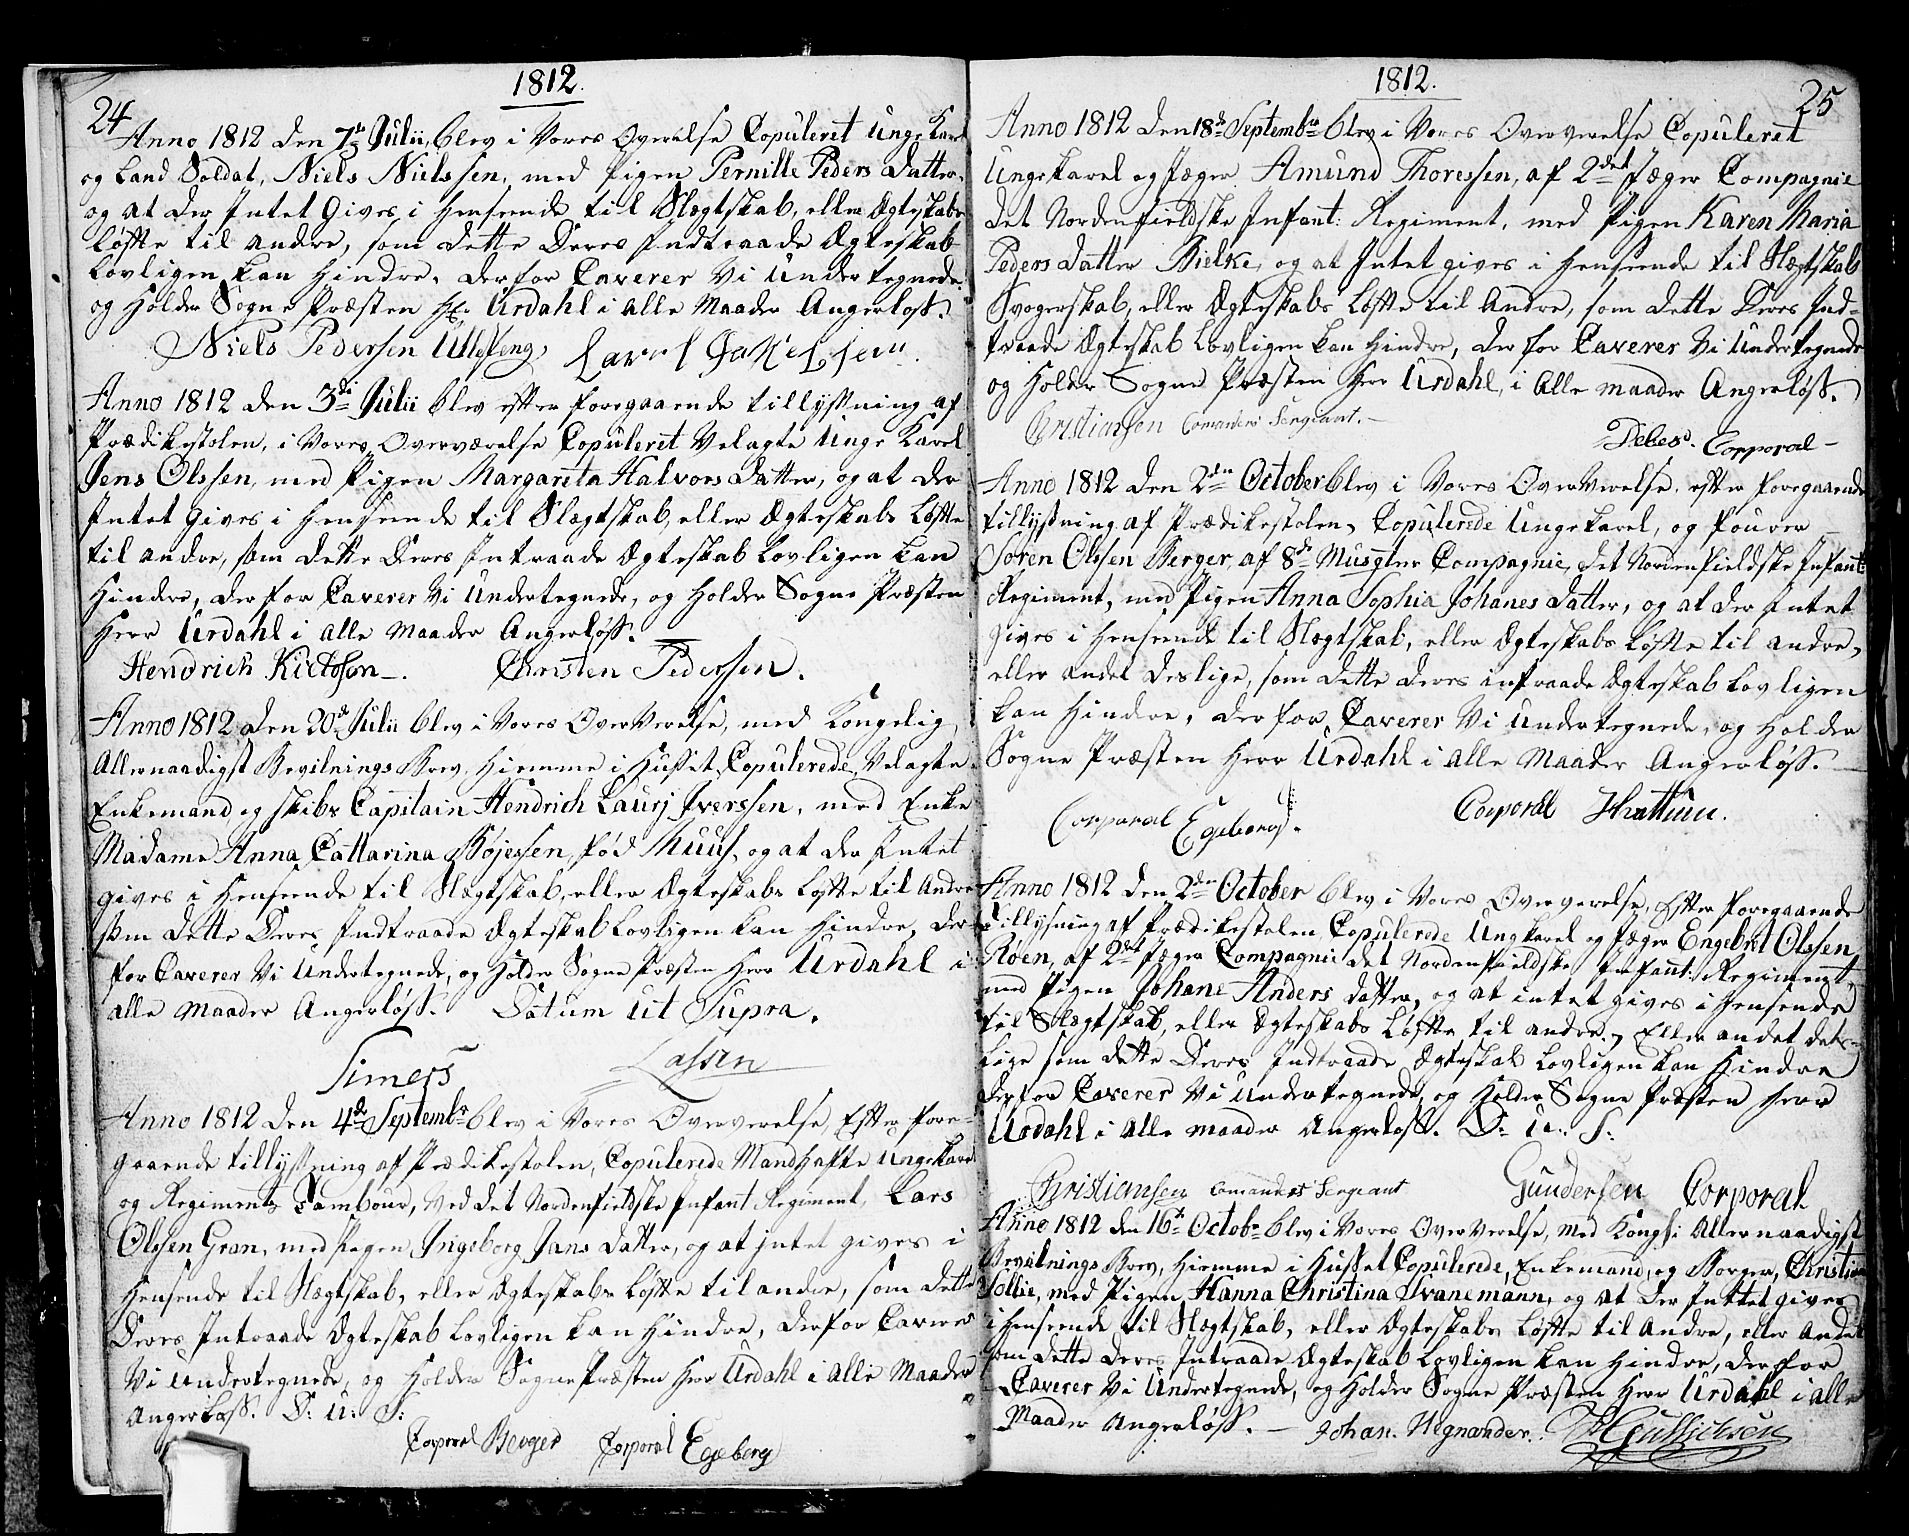 1812.
24
Anno 1812 den 7de Julii, blev i Vores Overvelse Copuleret Unge Karl
og Land Soldat, Niels Nielssen, med Pigen Pernille Peders Datter,
og at der Intet Gives i Henseende til Slægtskab, eller Ægteskabs
Løfte til andre, som dette Deres Indtraade Ægteskab
Lovligen kan Hindre, derfor Caverer Vi Undertegnede
og Holder Sogne Præsten Hr. Urdahl i alle Maader Angerløst.
Niels Pedersen Ulleseng,
Anno 1812 den 3die Julii blev efter foregaaende tillysning af
Prædikestolen, i Vores Overværelse Copuleret Velagte Unge Karel
Jens Olssen, med Pigen Margareta Halvors Datter, og at der
Intet Gives i Henseende til Slægtskab, eller Ægteskabs Løfte
til andre, som dette Deres Intraade Ægteskab Lovligen kan
Hindre, derfor Caverer Vi Undertegnede, og Holder Sogne Præsten
Herr Urdahl i alle Maader Angerløss.
Hendrich Christen Pedersen.
Anno 1812 den 20de Julii blev i Vores OverVerelse, med Kongelig
Allernaadigst Bevilnings Brev, Hiemme i Huset Copulerede, Velagte
Enkemand og Skibs Capitain Hendrich Laurj Iverssen, med Enke
Madame Anna Cattarina Böjessen, fød Muus, og at der Intet
gives i Henseende til Slægtskab, eller Ægteskabs Løfte til Andre
som dette Deres Indtraade Ægteskab Lovligen kan Hindre, der
for Caverer Vi Undertegnede, og Holder Sogne Præsten Herr Urdahl i
alle Maader Angerløss. Datum ut Supra.
Simers Lassen
Anno 1812 den 4de Septembr blev i Vores Oververelse, Efter Fore-
gaaende tillysning af Prædikestolen, Copulerede Mandhafte Ungekarel
og Regiments Tambour, ved det Nordenfieldske Infant Regiment, Lars
Olssen Gran, med Pigen Ingeborg Jans Datter, og at intet gives i
Hensende til Slægtskab, eller Ægteskabs Løfte til andre, som dette
Deres Intraade Ægteskab Lovligen kan Hindre, derfor Caveres
Vi Undertegnede, og Holder Sogne Præsten Herr Urdahl i alle Maader
Angerløss. D: u: S:
Corporal Berger Corporal Egeberg
1812.
25
Anno 1812 den 18de Septembr blev i Vores Oververelse Copuleret
Ungekarel og Jæger Amund Thoressen, af 2det Jæger Compagnie
det Nordenfieldske Infant: Regiment, med Pigen Karen Maria
Peders Datter Bielke, og at Intet gives i Henseende til Slægtskab
Svogerskab, eller Ægteskabs Løfte til Andre, som dette Deres Ind-
traade Ægteskab Lovligen kan Hindre, derfor Caverer Vi Undertegnede
og Holder Sogne Præsten Herr Urdahl, i alle maader Angerløst.
Christiansen Comanders Sergeant.-
Debes. Corporal-
Anno 1812 den 2den October blev i Vores OverVerelse, efter foregaaende
tillysning af Prædikestolen, Copulerede Ungekarel, og Fourer
Sören Olssen Berger, af 8de Musqter Compagnie, det Nordenfieldske Infant:
Regiment, med Pigen Anna Sophia Johanes Datter, og at der Intet
gives i Henseende til Slægtskab, eller Ægteskabs Løfte til andre,
eller andet deslige, som dette Deres intraade Ægteskab Lovligen
kan Hindre, derfor Caverer Vi Undertegnede, og Holder
Sogne Præsten Herr Urdahl i alle Maader Angerløss.
Corporal Egeberg. Corporal
Anno 1812 den 2den October blev i Vores Oververelse, Efter Foregaaende
Tillysning af Prædikestolen, Copulerede Ungkarel og Jæger Engebret Olssen
Röen, af 2det Jæger Compagnie det Nordenfieldske Infant: Regiment,
med Pigen Johane Anders Datter, og at intet gives i Hensende
til Slægtskab, eller Ægteskabs Løfte til andre, Eller andet des-
lige som dette Deres Indtraade Ægteskab Lovligen kan Hindre
derfor Caverer Vi Undertegnede, og Holder Sogne Præsten Herr
Urdahl i alle maader Angerløss. D: u: S:
Christiansen Comanders Sergeant Gundersen Corporal
Anno 1812 den 16de Octobr blev i Vores OverVerelse, Med Kongl: Allernaadigst
Bevilnings Brev, Hiemme i Huset Copulerede, Enkemand, og Borger, Christian
Sollie, med Pigen Hanna Christina Svanemann, og at der Inttet gives
i Henseende til Slægtskab, eller Ægteskabs Løfte til Andre, eller Andet
som dette Deres Intraade Ægteskab Lovligen kan Hindre, derfor
Caverer Vi Undertegnede, og Holder Sogne Præsten Herr Urdahl i alle
Maader Angerløss.- Johan Wegnander.